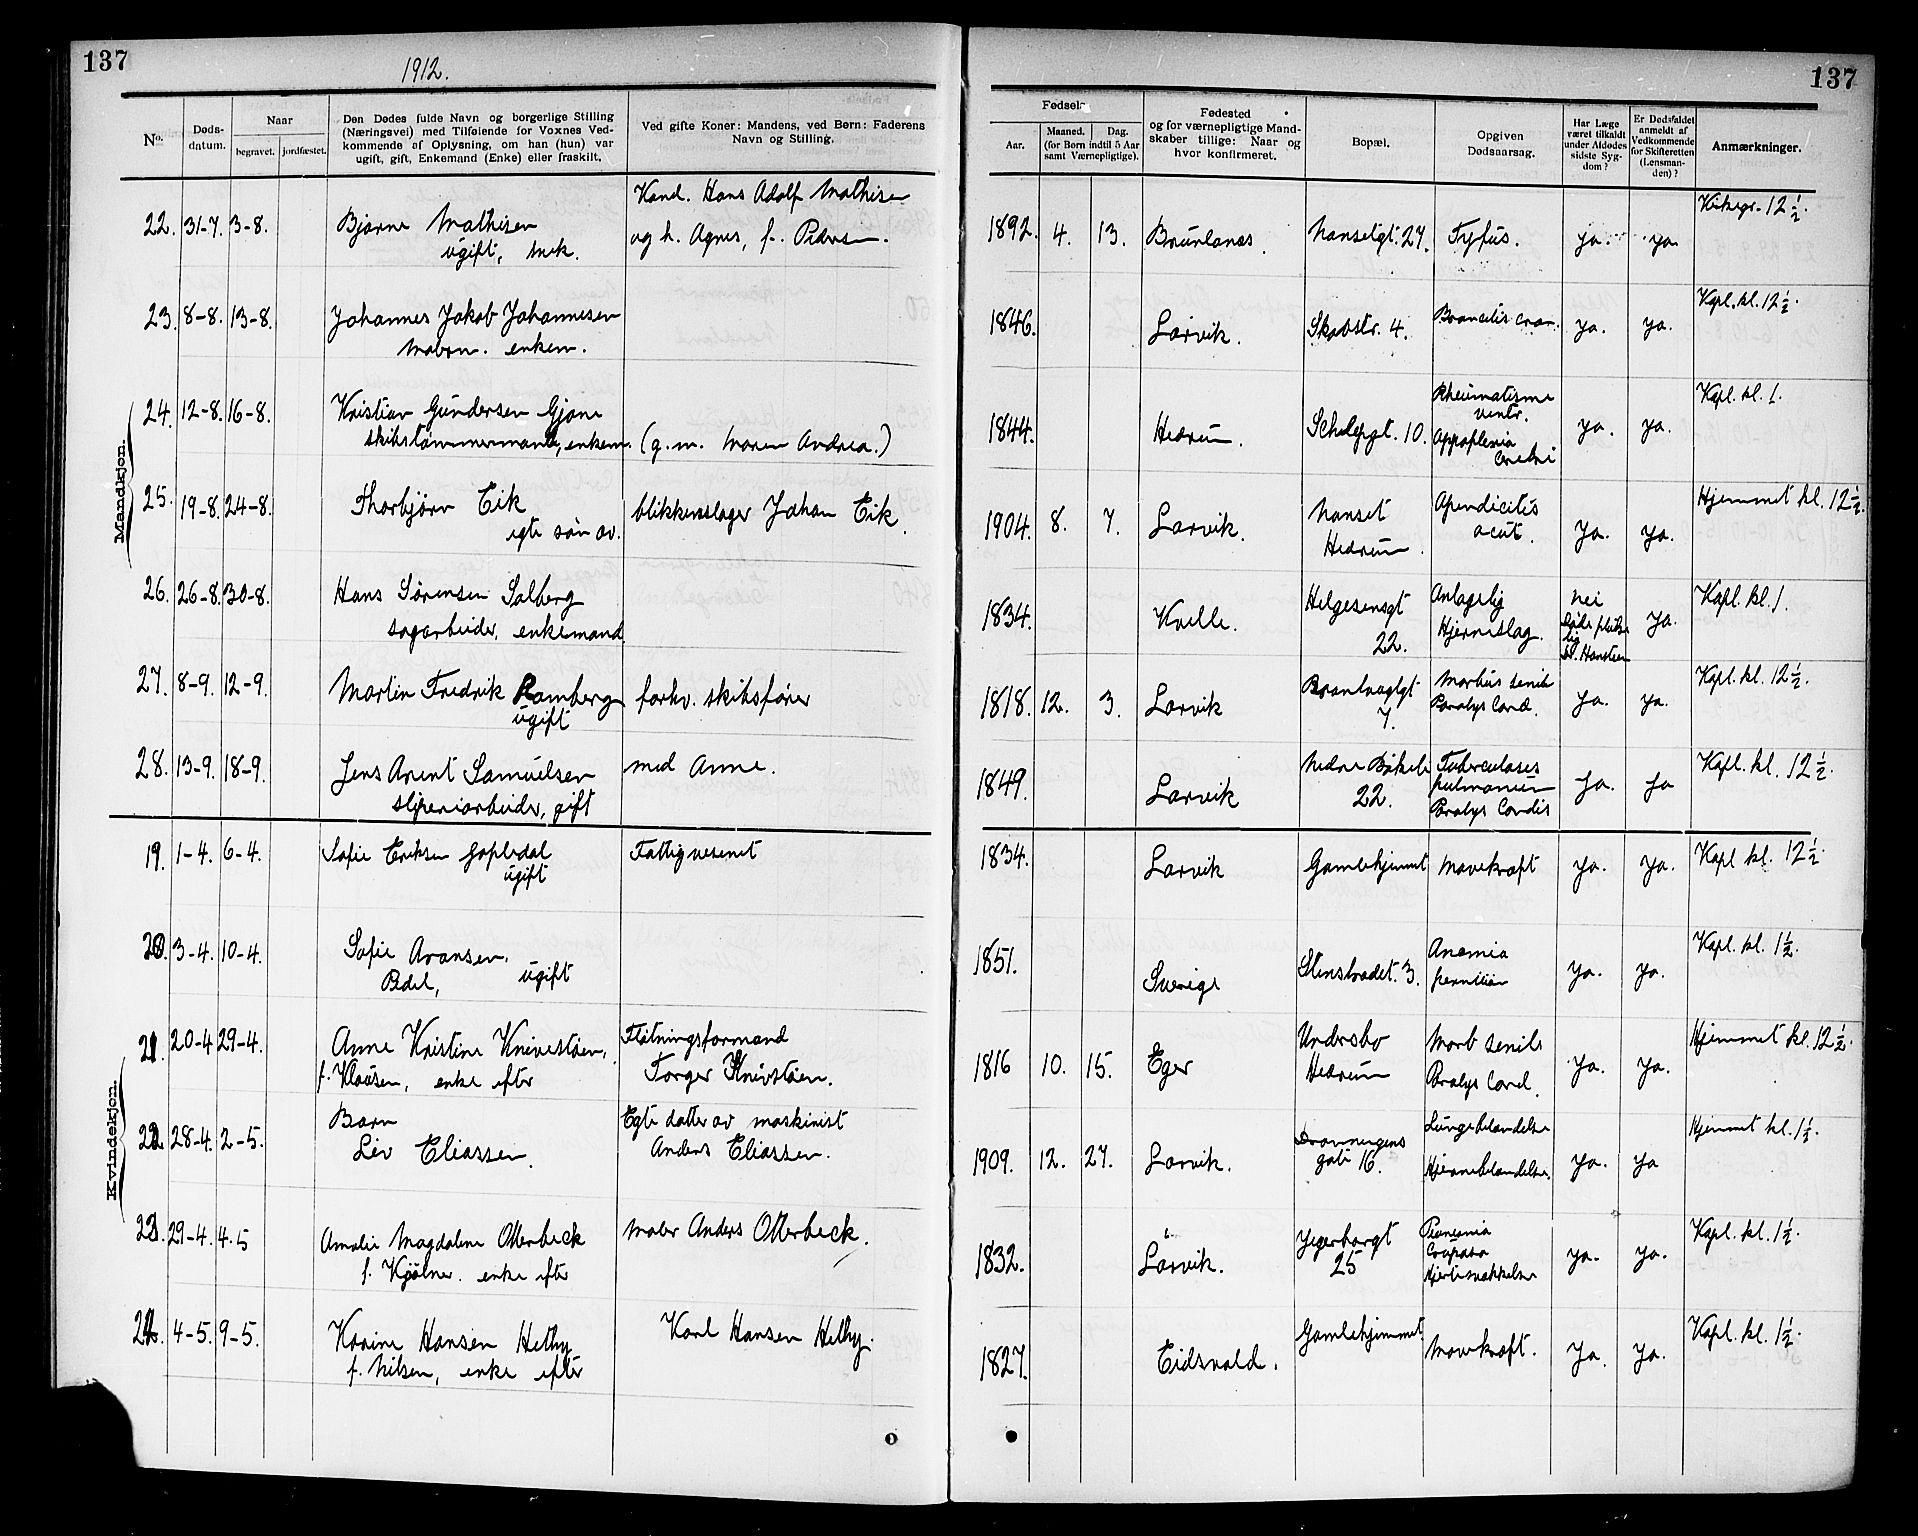 137
1912.
137
No.
Døds-datum.
Naar
begravet.
jordfæstet.
Den Dødes fulde Navn og borgerlige Stilling
(Næringsvei) med Tilføiende for Voxnes Ved-
kommende af Oplysning, om han (hun) var
ugift, gift, Enkemand (Enke) eller fraskilt.
Ved gifte Koner: Mandens, ved Børn: Faderens
Navn og Stilling.
Fødsels
Aar.
Maaned.
Dag.
(for Børn indtil 5 Aar
samt Værnepligtige).
Fødested
og for værnepligtige Mand-
skaber tillige: Naar og
hvor konfirmeret.
Bopæl.
Opgiven
Dødsaarsag.
Har Læge
været tilkaldt
under Afdødes
sidste Syg-
dom?
Er Dødsfaldet
anmeldt af
Vedkommende
for Skifteretten
(Lensman-
den)?
Anmærkninger.
Mandkjøn.
22. 31-7. 3-8. Bjarne Mathisen
ugift,
Hans Adolf Mathisen
og h. Agnes, f. Pedersen.
1892. 4. 13. Brunlanes. Nansetgt. 27. Tyfus. ja. ja. 12 ½.
23. 8-8. 13-8. Johannes Jakob Johannesen
enkem.
1846. Larvik. 4. ja. ja. Kapl. kl. 12 ½.
24. 12-8. 16-8. Kristian Gundersen Gjone
skibstømmermand, enkem. (g. m. Maren Andrea.)
1844. Hedrum. 10. Rheumatisme
ventr.
Appoplexia
Cerebri
ja. ja. Kapl. kl. 1.
25. 19-8. 24-8. Thorbjørn Eik
egte søn av. blikkenslager Johan Eik.
1904. 8. 7. Larvik. Nanset
Hedrum. Apendicitis
acut. ja. ja. Hjemmet kl. 12 ½.
26. 26-8. 30-8. Hans Sørensen Solberg
sagarbeider, enkemand.
1834. Kvelle. Helgesensgt
22. Antagelig
Hjerneslag. Nei
ja. Kapl. kl. 1.
27. 8-9. 12-9. Martin Fredrik Ramberg
ugift forhv. skibsfører
1818. 12. 3. Larvik
7. Morbus senil
Paralys Card. ja. ja. Kapl. kl. 12 ½.
28. 13-9. 18-9. Jens Arent Samuelsen
sliperiarbeider, gift med Anne.
1849. Larvik Nedre Bøkeli
22. Tuberculoses
pulmonum
Paralys Cordis ja. ja Kapl. kl. 12 ½.
Kvindekjøn.
19. 1-4. 6-4. Sofie Eriksen
ugift Fattigvesenet
1834. Larvik Gamlehjemmet Mavekræft ja. ja. Kapl kl. 12 ½.
20. 3-4. 10-4. Sofie Aronsen.
ugift
1851. Sverige 3. Anemia
ja. ja. Kapl. kl. 1 ½.
21. 20-4 29-4. Anne Kristine Knivestøen,
f. Klausen, enke efter Fløtningsformand
Torger Knivstøen.
1816 10. 15. Eger Undersbo
Hedrum Morb senil
Paralys Card. ja. ja. Hjemmet kl. 12 ½.
22. 28-4. 2-5. Barn
Liv Eliassen. Egte datter av maskinist
Anders Eliassen.
1909. 12. 27. Larvik. Dronningens
gate 16. Lungebetændelse
Hjernebetændelse. ja. ja Hjemmet kl. 1 ½.
23. 29-4. 4.5 Amalie Magdalene Otterbeck
f. Kjølner. enke efter maler Anders Otterbeck.
1832. Larvik. Jegerborgt
25 Pneumonia
Hjertesvækkelse ja. ja. Kapl. kl. 1 ½.
24. 4-5. 9-5. Karine Hansen Helhy
f. Nilsen, enke efter Karl Hansen Helhy.
1827. Eidsvold. Gamlehjemmet Mavekræft. ja. ja. Kapl. kl. 1 ½.